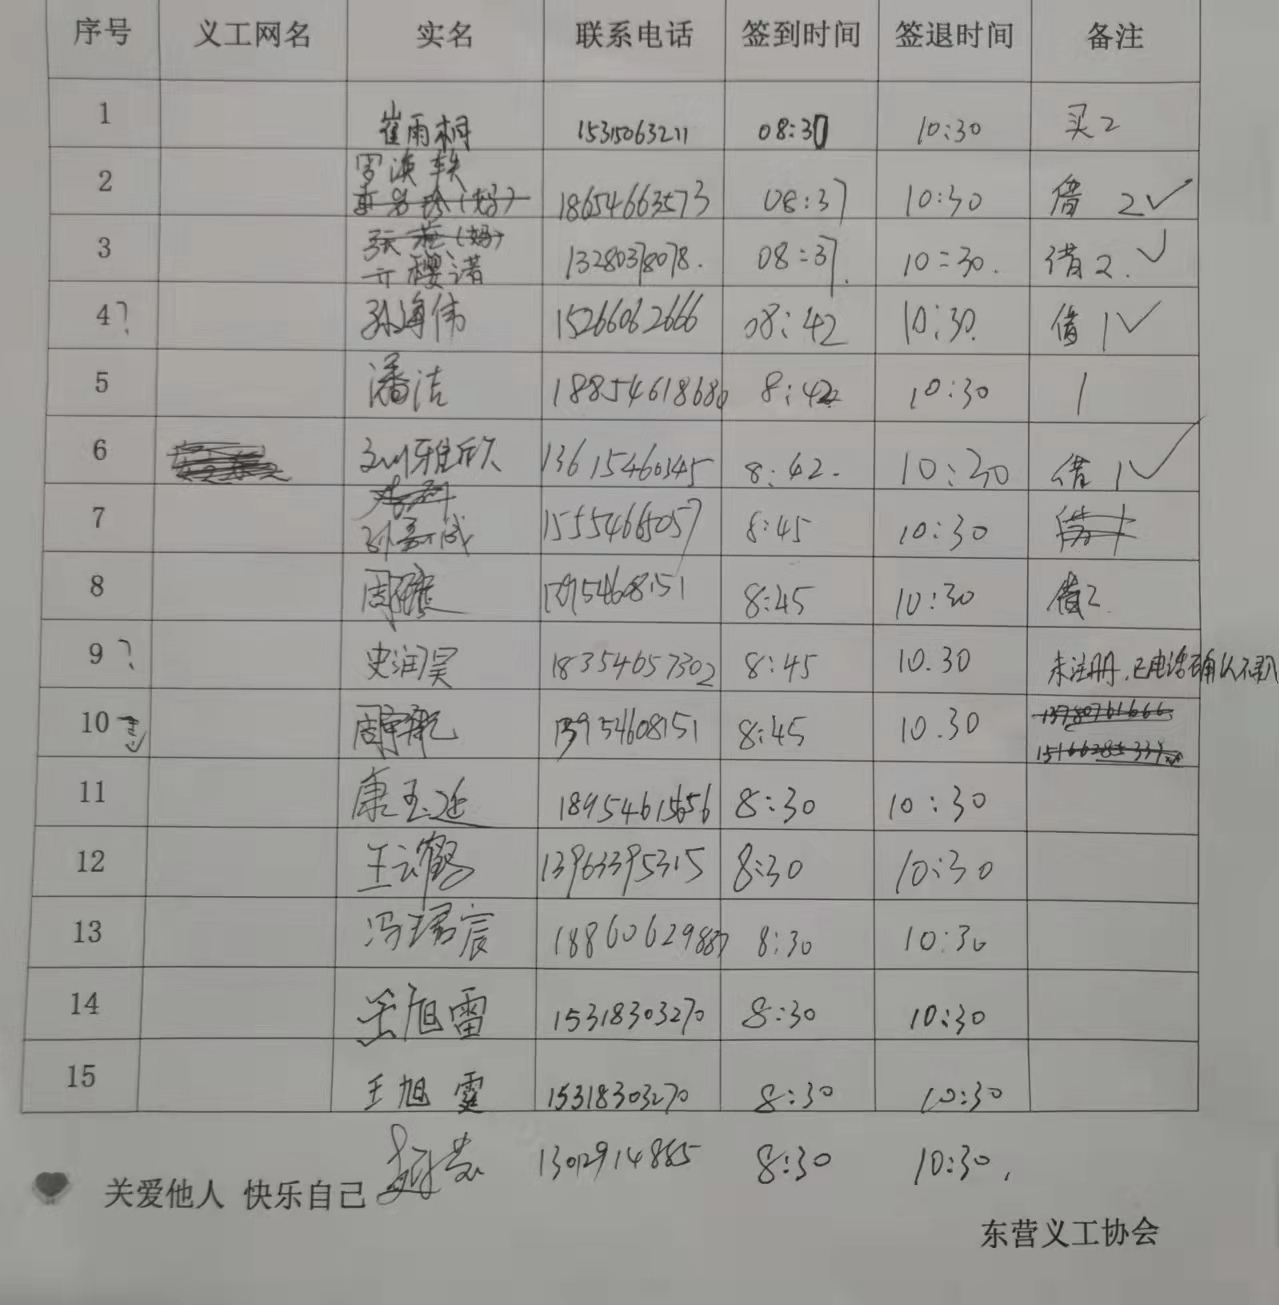 序号 义工网名 实名 联系电话 签到时间 签退时间 备注
1 崔雨桐 15315063211 08:30 10:30 买2
2 罗 轶 18654663573 08:37 10:30 借 2✓
3 樱诺 13280378078. 08:37. 10:30. 借2.✓
4? 孙海伟 15266062666 08:42 10:30. 借1✓
5 潘洁 18854618680 8:42 10:30 1
6 雅欣 13615460345 8:42. 10:30 借1✓
7 孙 成 15554665057 8:45 10:30
8 周 13954608151 8:45 10:30 借2.
9? 史润昊 18354657302 8:45 10.30 未注册,已电话确认不录入
10 周宇乾 13954608151 8:45 10.30 13780761666
15166285333
11 康玉 18954615656 8:30 10:30
12 王云鹤 13963395315 8:30 10:30
13 冯珺宸 18860629887 8:30 10:30
14 王旭雷 15318303270 8:30 10:30
15 王旭霆 15318303270 8:30 10:30
13012914885 8:30 10:30.
关爱他人 快乐自己
东营义工协会